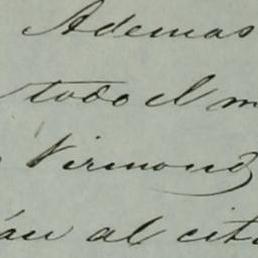 Ademas
todo el m
Virmond
án al cit